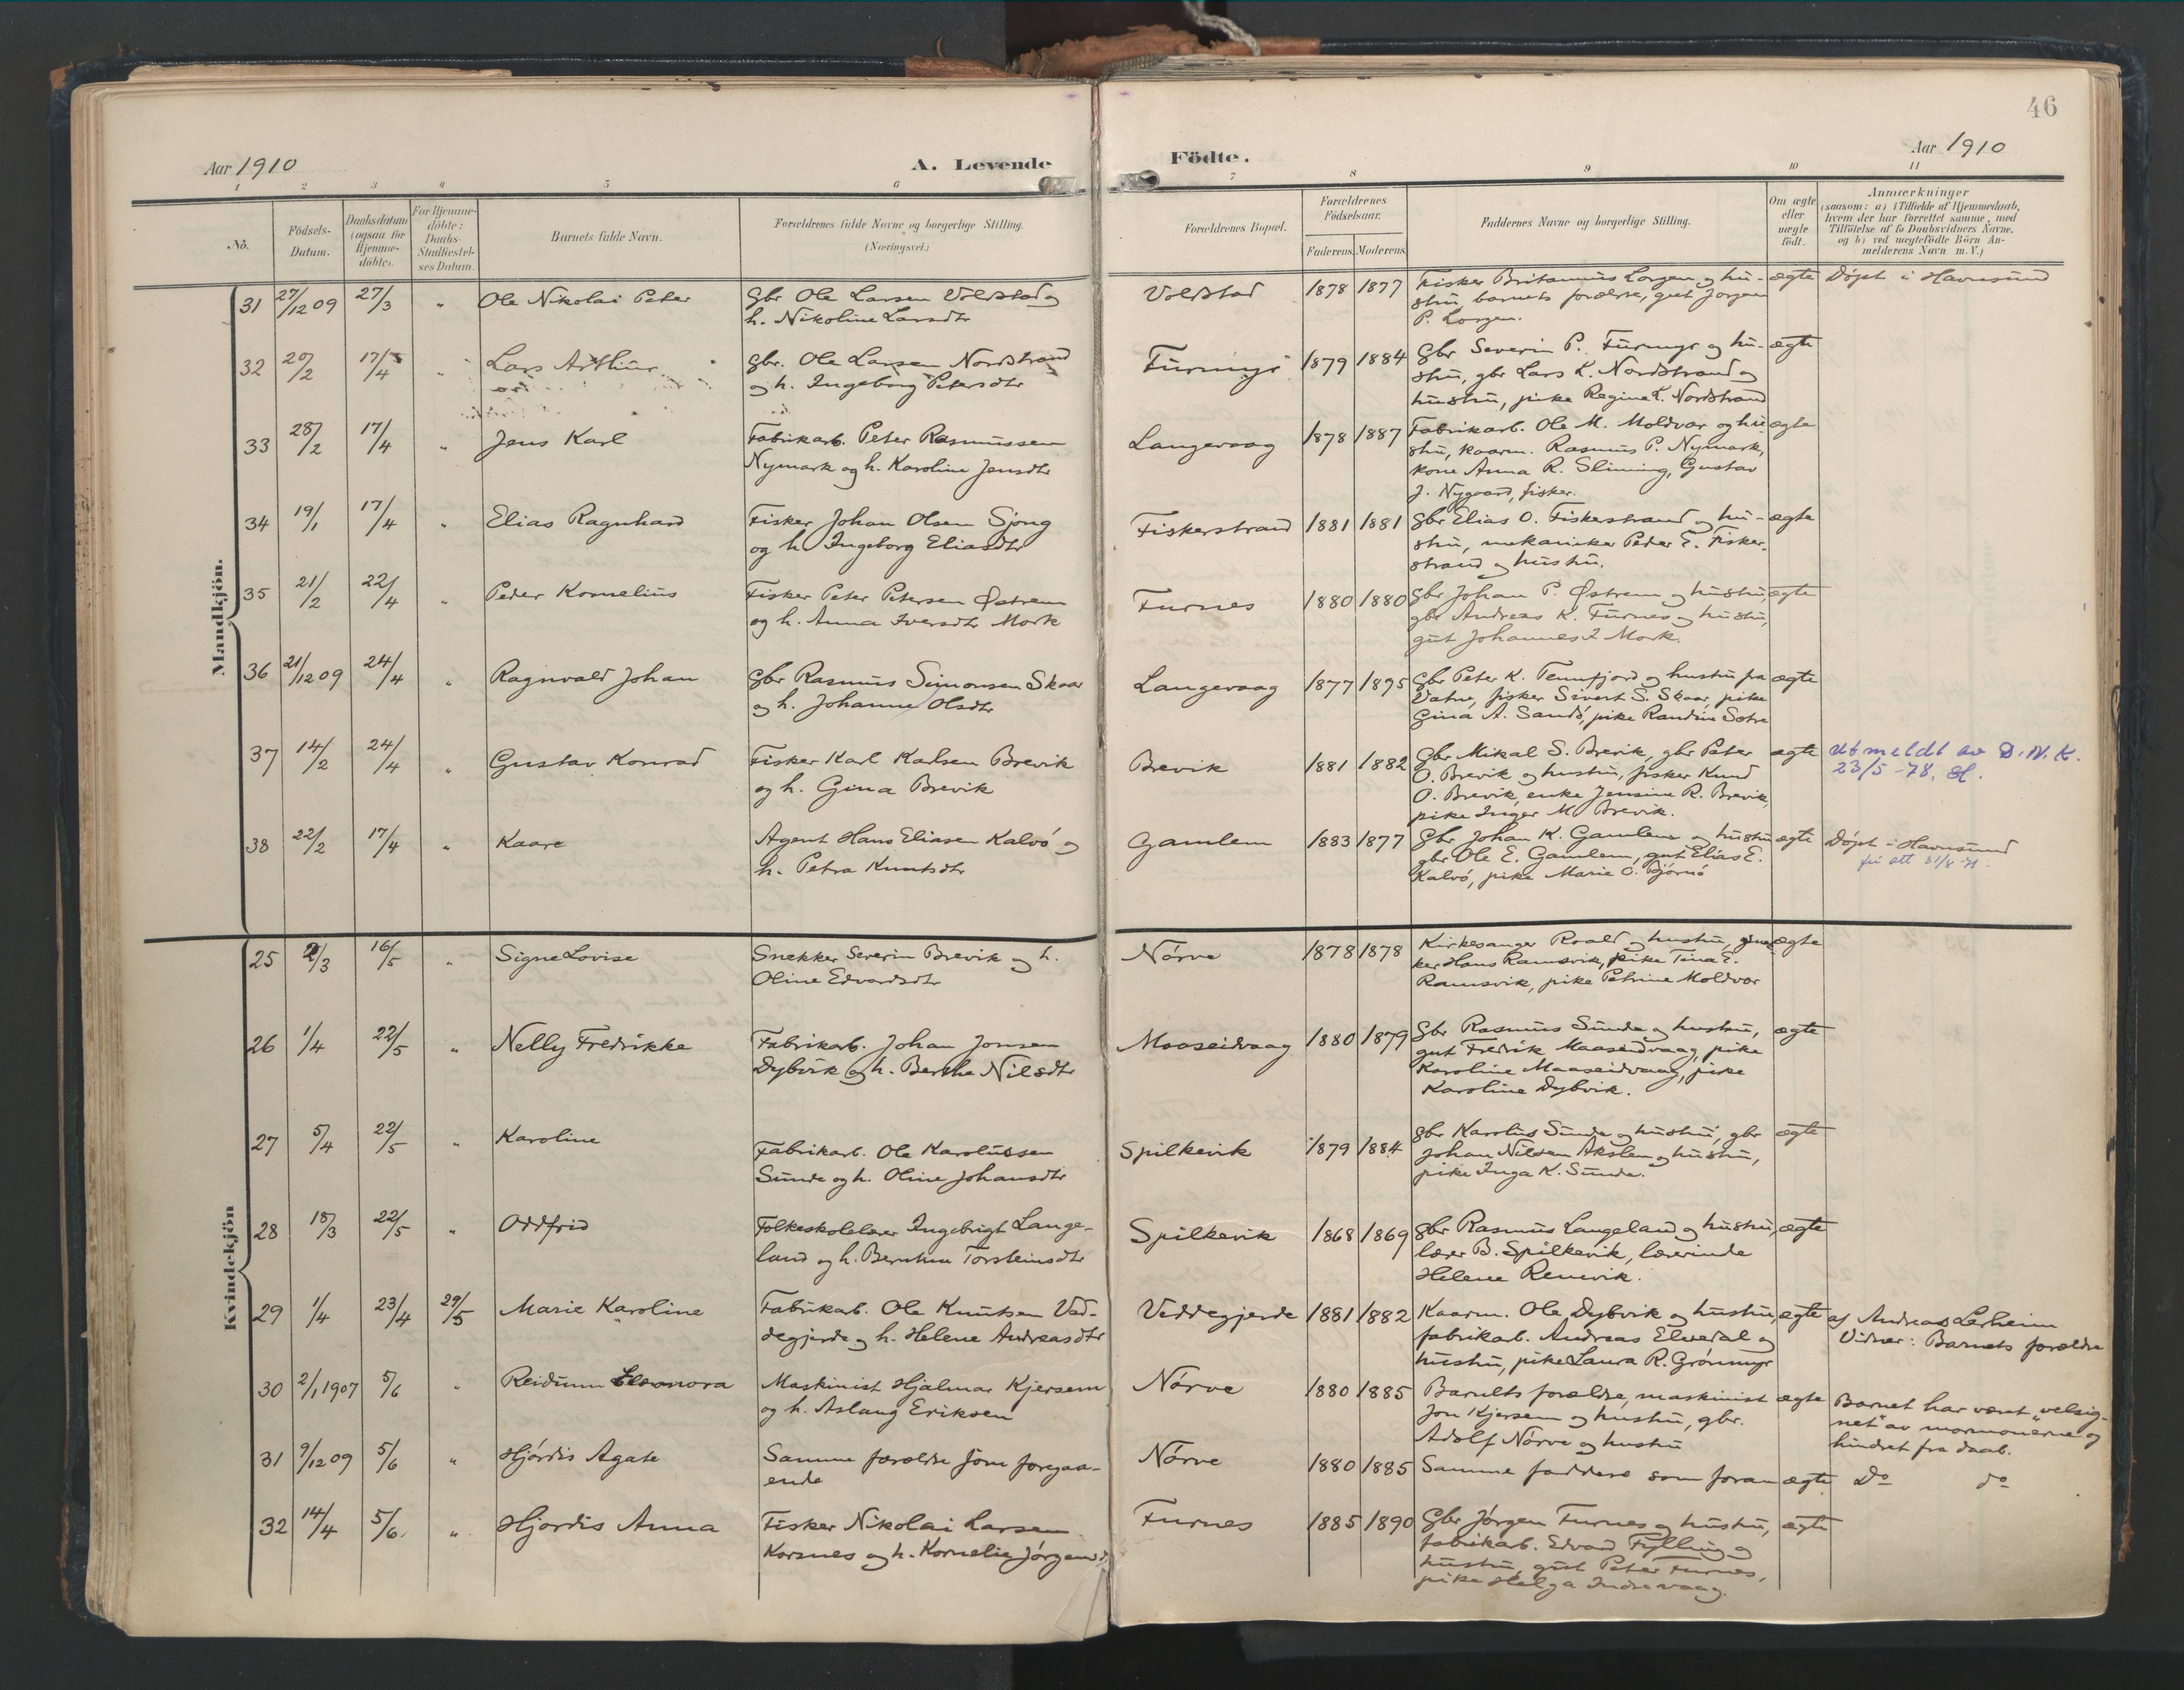 46
Aar 1910
A. Levende
Födte.
Aar 1910
1 2 3 4 5 6 7 8 9 10 11
No.
Födsels-
Datum.
Daabsdatum
(ogsaa for
Hjemme-
döbte).
For Hjemme-
döbte:
Daabs-
Stadfæstel-
ses Datum.
Barnets fulde Navn.
Forældrenes fulde Navne og borgerlige Stilling.
(Næringsvei.)
Forældrenes Bopæl.
Forældrenes
Födselsaar.
Faderens. Moderens.
Faddernes Navne og borgerlige Stilling.
Om ægte
eller
uægte
födt.
Anmærkninger
(saasom: a) i Tilfælde af Hjemmedaab,
hvem der har forrettet samme, med
Tilföielse af to Daabsvidners Navne,
og b) ved uægtefödte Börn An-
melderens Navn m. V.)
Mandkjön.
31 27/12 09 27/3 " Ole Nikolai Peter
Gbr Ole Larsen Voldstad og
h. Nikoline Larsdtr
Voldstad 1878 1877
Fisker Britanius Longen og hu-
stru, barnets forældre, gut Jørgen
P. Longen.
ægte
Døpt i Havnsund
32 20/2 17/4 " Lars Arthur
gbr. Ole Larsen Nordstrand
og h. Ingeborg Petersdtr
Furmyr 1879 1884
Gbr Severin P. Furmyr og hu-
stru, gbr Lars L. Nordstrand og
hustru, pike Regine L. Nordstrand
ægte
33 28/2 17/4 " Jens Karl
Fabrikarb. Peter Rasmussen
Nymark og h. Karoline Jensdtr
Langevaag 1878 1887
Fabrikarb. Ole M. Moldvær og hu-
stru, kaarm. Rasmus P. Nymark,
kone Anna R. Slinning, Gustav
J. Nygaard, fisker.
ægte
34 19/1 17/4 " Elias Ragnhard
Fisker Johan Olsen Sjong
og h Ingeborg Eliasdtr
Fiskerstrand 1881 1881
Gbr Elias O. Fiskerstrand og hu-
stru, mekaniker Peder E. Fisker-
strand og hustru.
ægte
35 21/2 22/4 " Peder Kornelius
Fisker Peter Petersen Østrem
og h. Anna Iversdtr Mork
Furnes 1880 1880
Gbr Johan P. Østrem og hustru,
gbr Andreas K. Furnes og hustru,
gut Johannes I Mork.
ægte
36 21/12 09 24/4 " Ragnvald Johan
Gbr Rasmus Simonsen Skaar
og h. Johanne Olsdtr
Langevaag 1877 1895
Gbr Peter K. Tennfjord og hustru fra
Vatne, fisker Sivert S. Skaar, pike
Gina A. Sandö, pike Randine Sotre
ægte
37 14/2 24/4 " Gustav Konrad
Fisker Karl Karlsen Brevik
og h. Gina Brevik
Brevik 1881 1882
Gbr Mikal S. Brevik, gbr Peter
O. Brevik og hustru, fisker Knud
O. Brevik, enke Jensine R. Brevik,
pike Inger M Brevik.
ægte
Utmeldt av D.N.K.
23/5-78.
38 22/2 17/4 " Kaare
Agent Hans Eliasen Kalvö og
h. Petra Knutsdtr
Gamlem 1883 1877
Gbr Johan K. Gamlem og hustru
gbr Ole E. Gamlem, gut Elias E.
Kalvö, pike Marie O. Bjørnö
ægte
Døpt i Havnsund
31/8 71.
Kvindekjön
25 2/3 16/5 " Signe Lovise
Snekker Severin Brevik og h.
Oline Edvardsdtr
Nörve 1878 1878
Kirkesanger Roald og hustru,
ker Hans Ramsvik, pike Tina E.
Ramsvik, pike Petrine Moldvær
ægte
26 1/4 22/5 " Nelly Fredrikke
Fabrikarb. Johan Jonsen
Dybvik og h. Berthe Nilsdtr
Maaseidvaag 1880 1879
Gbr Rasmus Sunde og hustru,
gut Fredrik Maaseidvaag, pike
Karoline Maaseidvaag, pike
Karoline Dybvik.
ægte
27 5/4 22/5 " Karoline
Fabrikarb. Ole Karolussen
Sunde og h. Oline Johansdtr
Spilkevik 1879 1884
Gbr Karolus Sunde og hustru, gbr
Johan Nilsen Akslen og hustru,
pike Inga K. Sunde.
ægte
28 18/3 22/5 " Oddfrid
Folkeskolelærer Ingebrigt Lange-
land og h. Berntine Torsteinsdtr
Spilkevik 1868 1869
Gbr Rasmus Langeland og hustru,
lærer B. Spilkevik, lærerinde
Helene Remvik.
ægte
29 1/4 23/4 29/5 Marie Karoline
Fabrikarb. Ole Knutsen Ved-
degjerde og h. Helene Andreasdtr
Veddegjerde 1881 1882
Kaarm. Ole Dybvik og hustru,
fabrikarb. Andreas Elvedal og
hustru, pike Laura R. Grönmyr
ægte
af Andreas Lerheim
Vidner: Barnets forældre
30 2/1 1907 5/6 " Reidunn Eleonora
Maskinist Hjalmar Kjersem
og h. Aslaug Eriksen
Nørve 1880 1885
Barnets forældre, maskinist
Jon Kjersem og hustru, gbr.
Adolf Nörve og hustru
ægte
Barnet har været "velsig-
net" av mormonerne og
hindret fra daab.
31 9/12 09 5/6 " Hjördis Agate
Samme forældre som foregaa-
ende
Nørve 1880 1885
Samme faddere som foran
ægte
Do do
32 14/4 5/6. " Hjordis Anna
Fisker Nikolai Larsen
Korsnes og h. Kornelie Jörgensd
Furnes 1885 1890
Gbr Jörgen Furnes og hustru,
fabrikarb. Edvard Fylling og
hustru, gut Peter Furnes,
pike Helga Indrevaag.
ægte